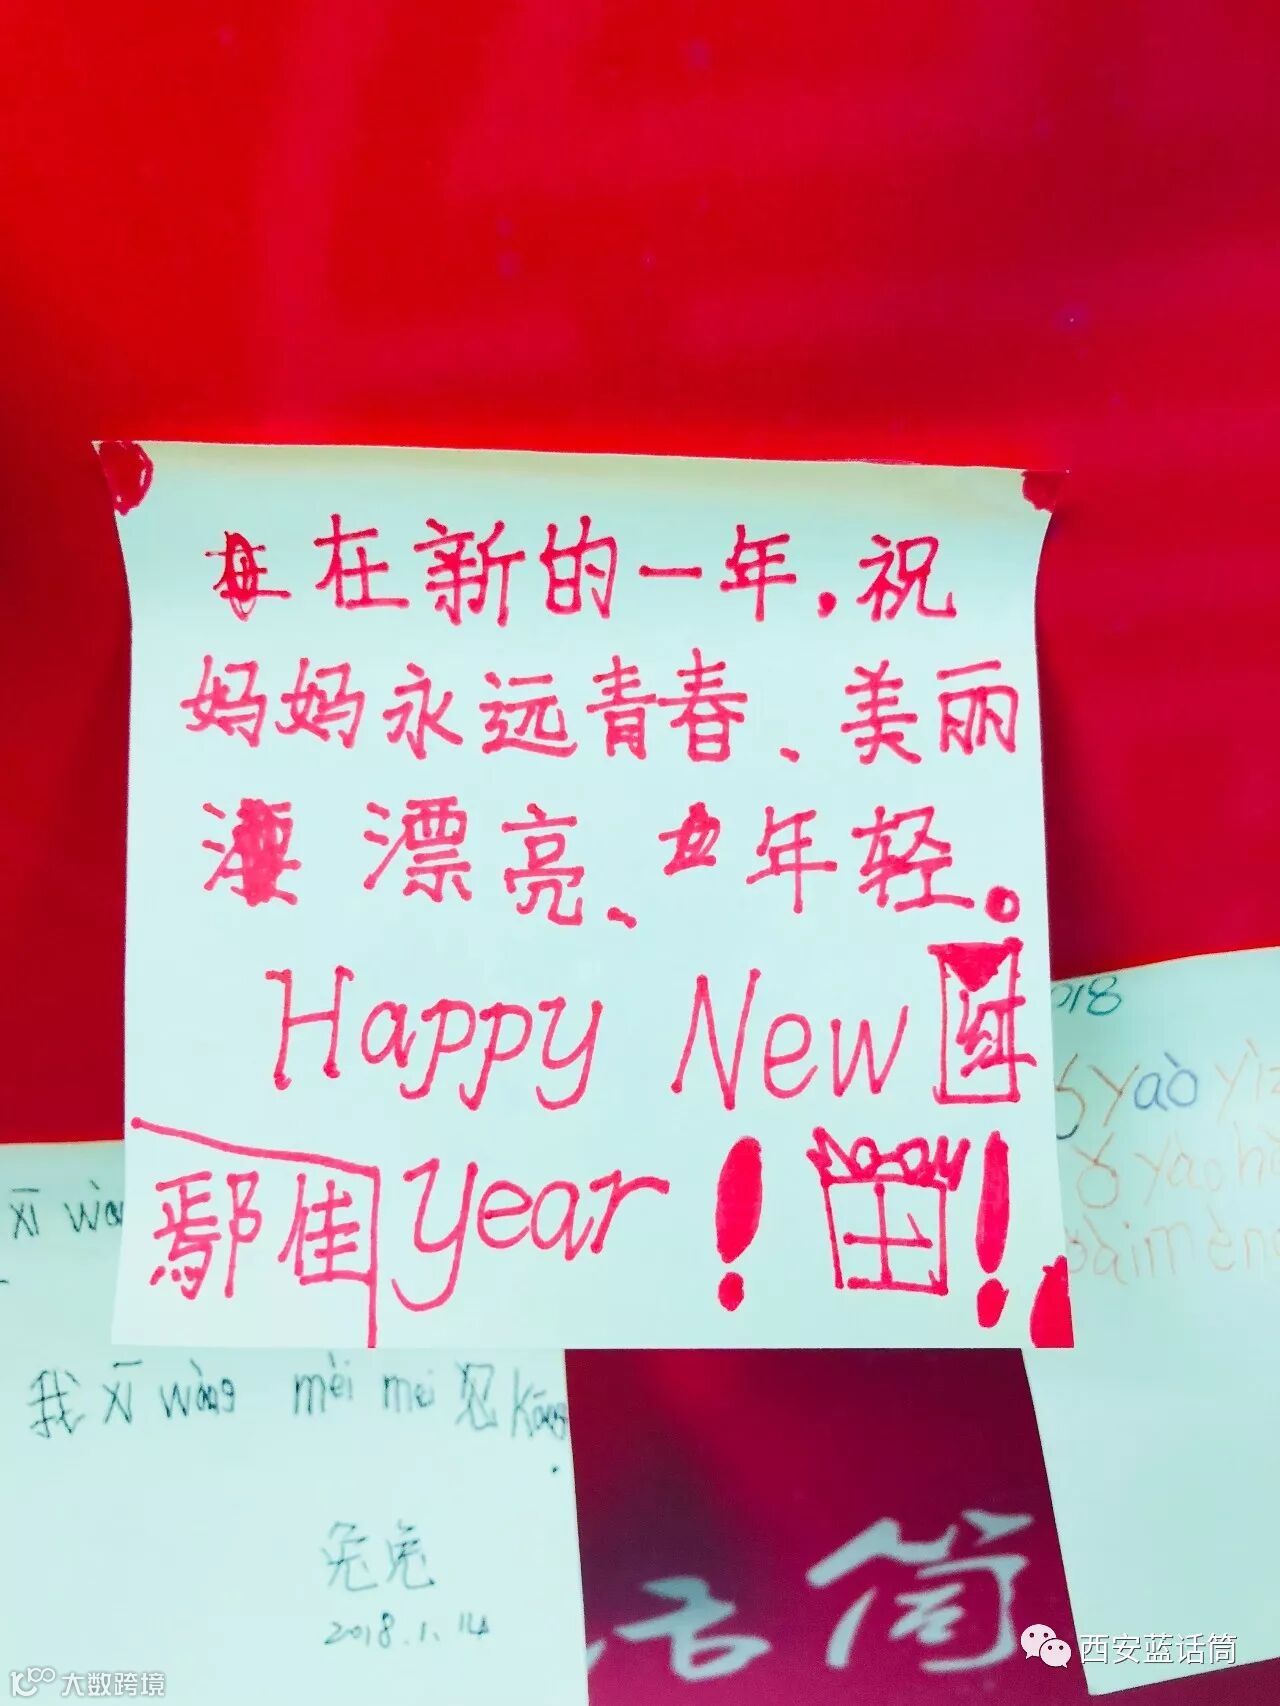 在新的一年,祝
妈妈永远青春、美丽
漂亮、年轻。
Happy New
year!!
鄢佳
红
2018
yào yì
yào
mèng
xī wàng
我 xī wàng mèi mei 忍 kāng
兔兔
2018.1.14
话筒
西安蓝话筒
大数跨境